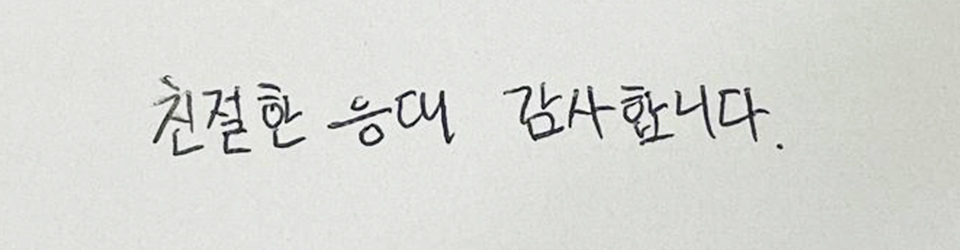 친절한 응대 감사합니다.